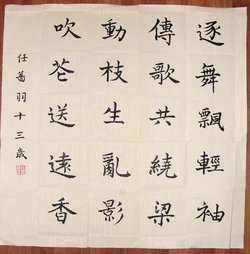 逐舞飄輕袖
傳歌共繞梁
動枝生亂影
吹花送遠香
任蕃羽十三歲